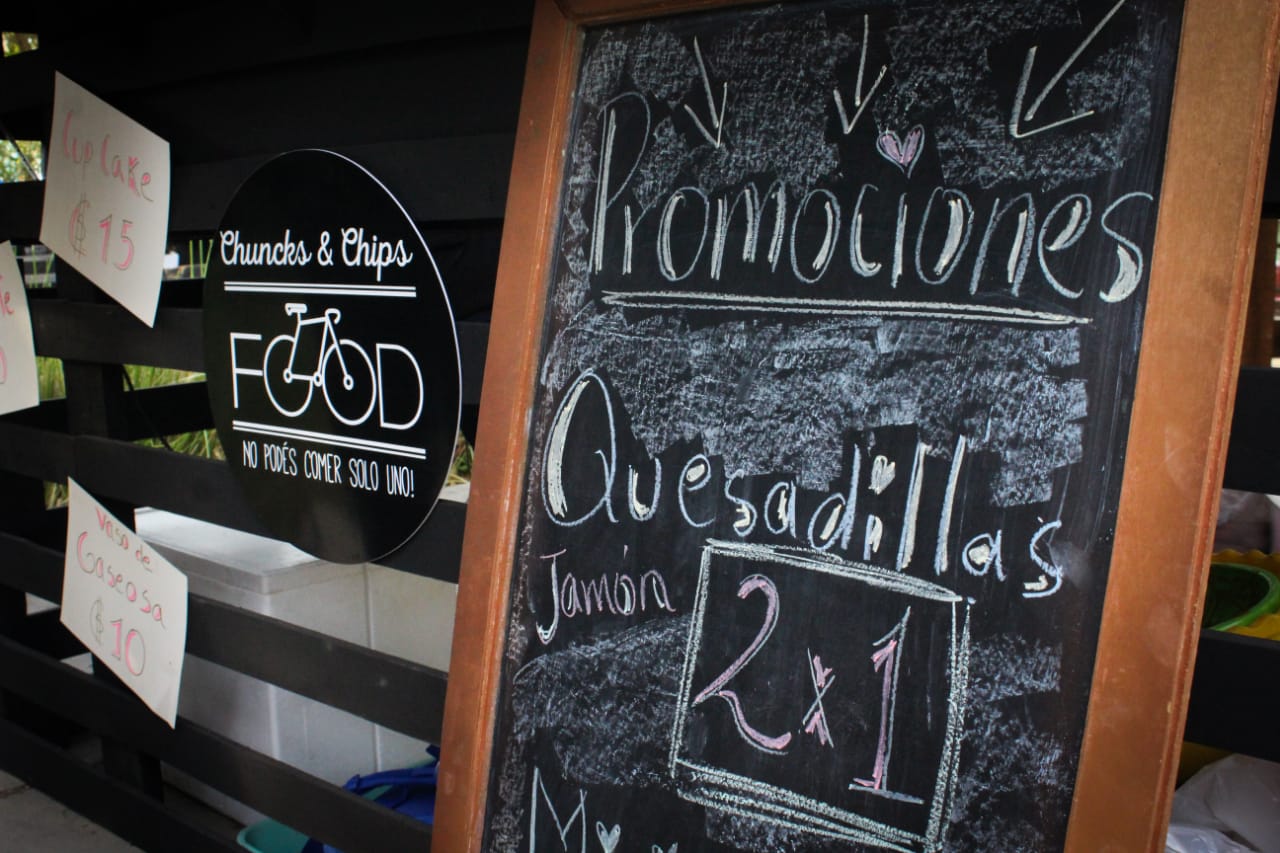 Cup Cake
$ 15
Chuncks & Chips
FOOD
NO PODÉS COMER SOLO UNO!
Vaso de
Gaseosa
$ 10
Promociones
Quesadillas
Jamón
2x1